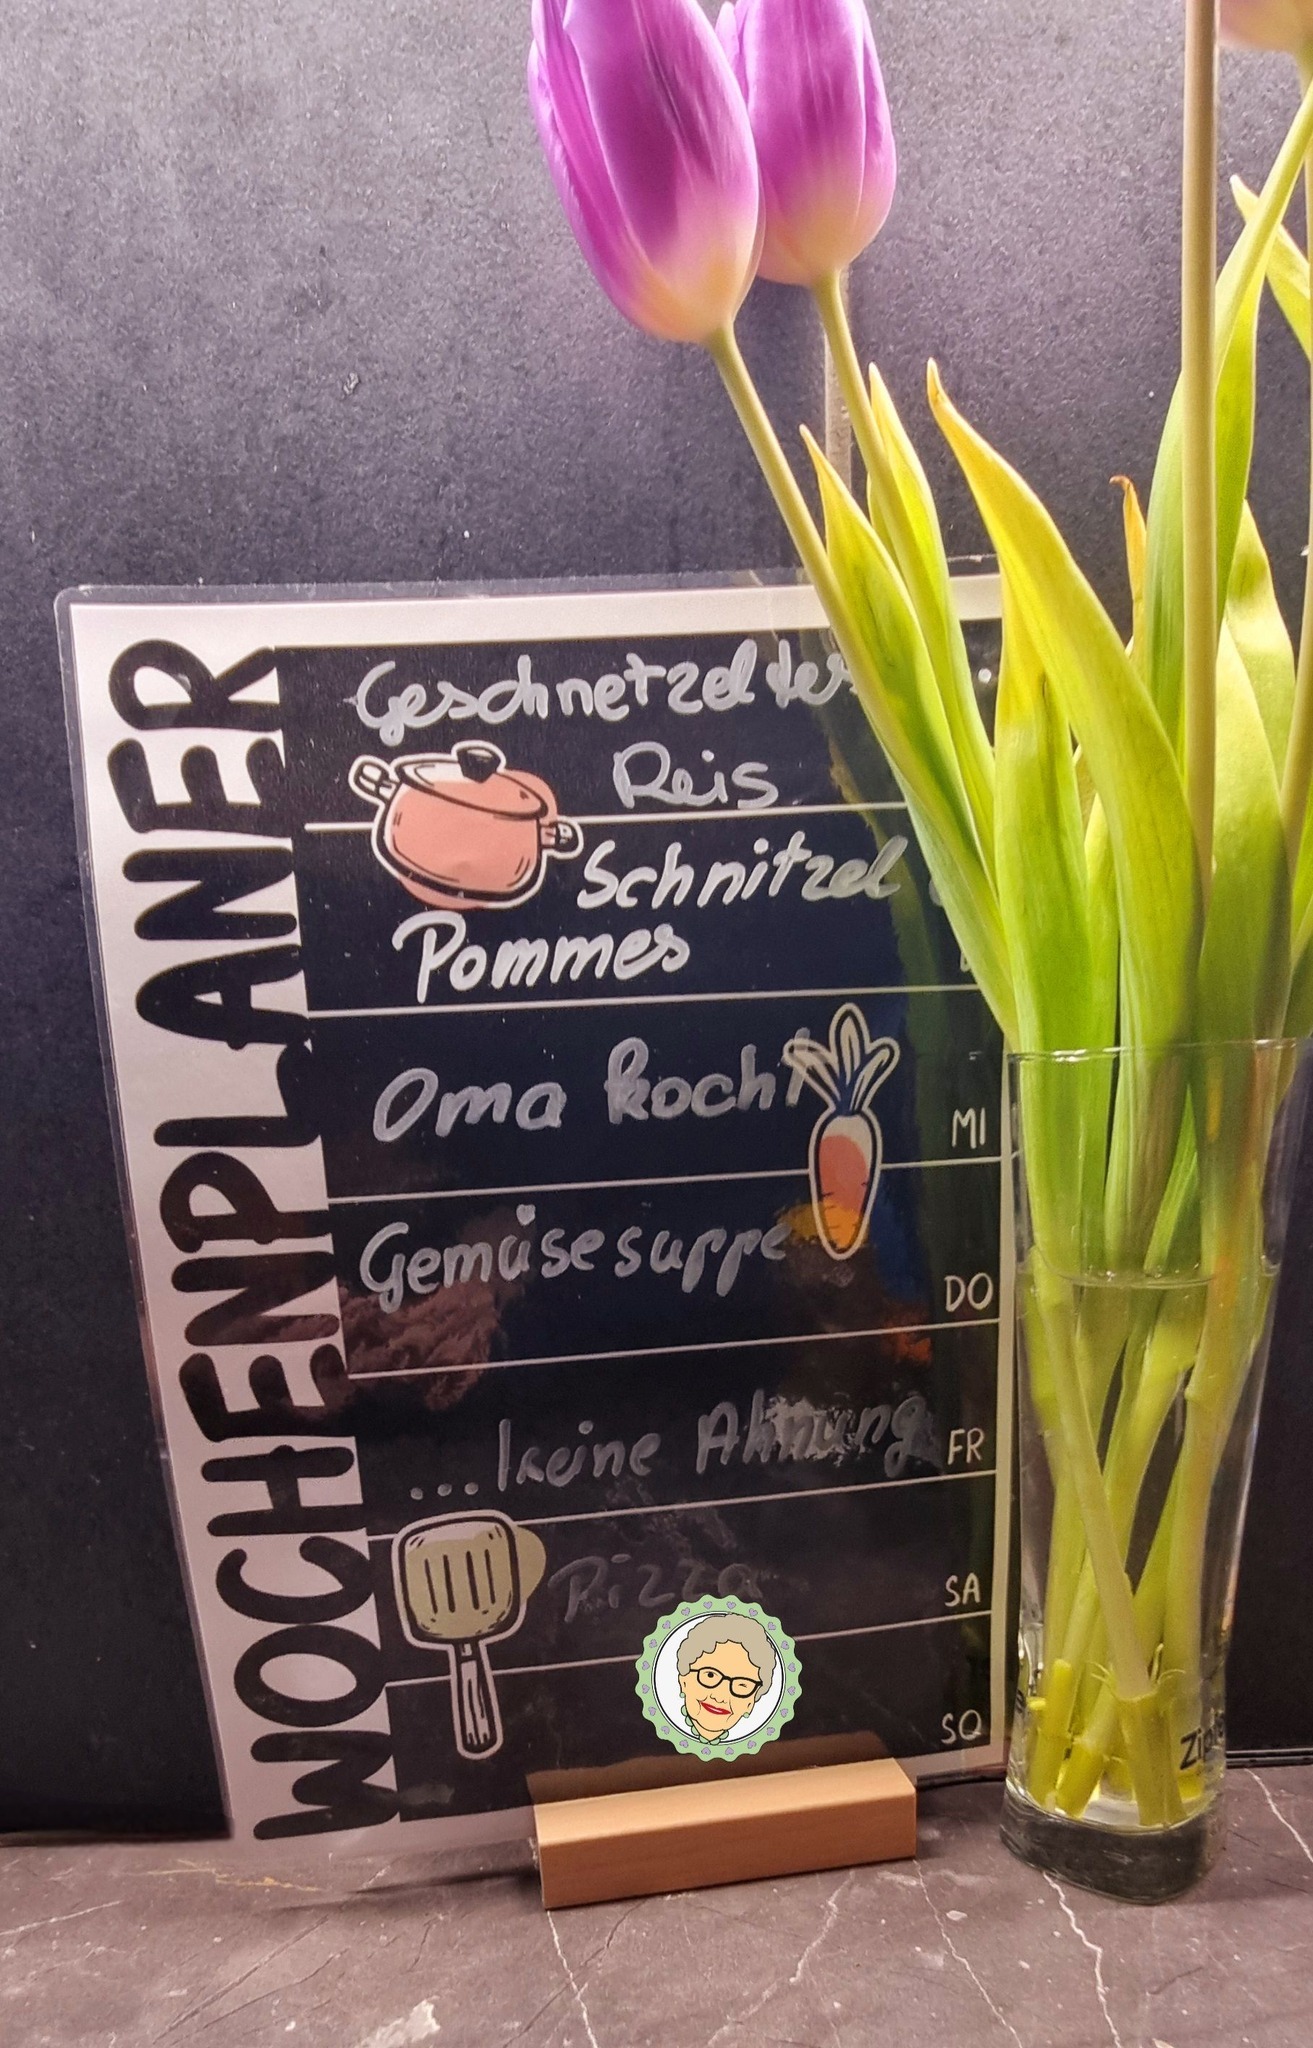 WOCHENPLANER
Geschnetzeltes
Reis
Schnitzel
Pommes
Oma kocht
MI
Gemüsesuppe
DO
... keine Ahnung
FR
Pizza
SA
SO